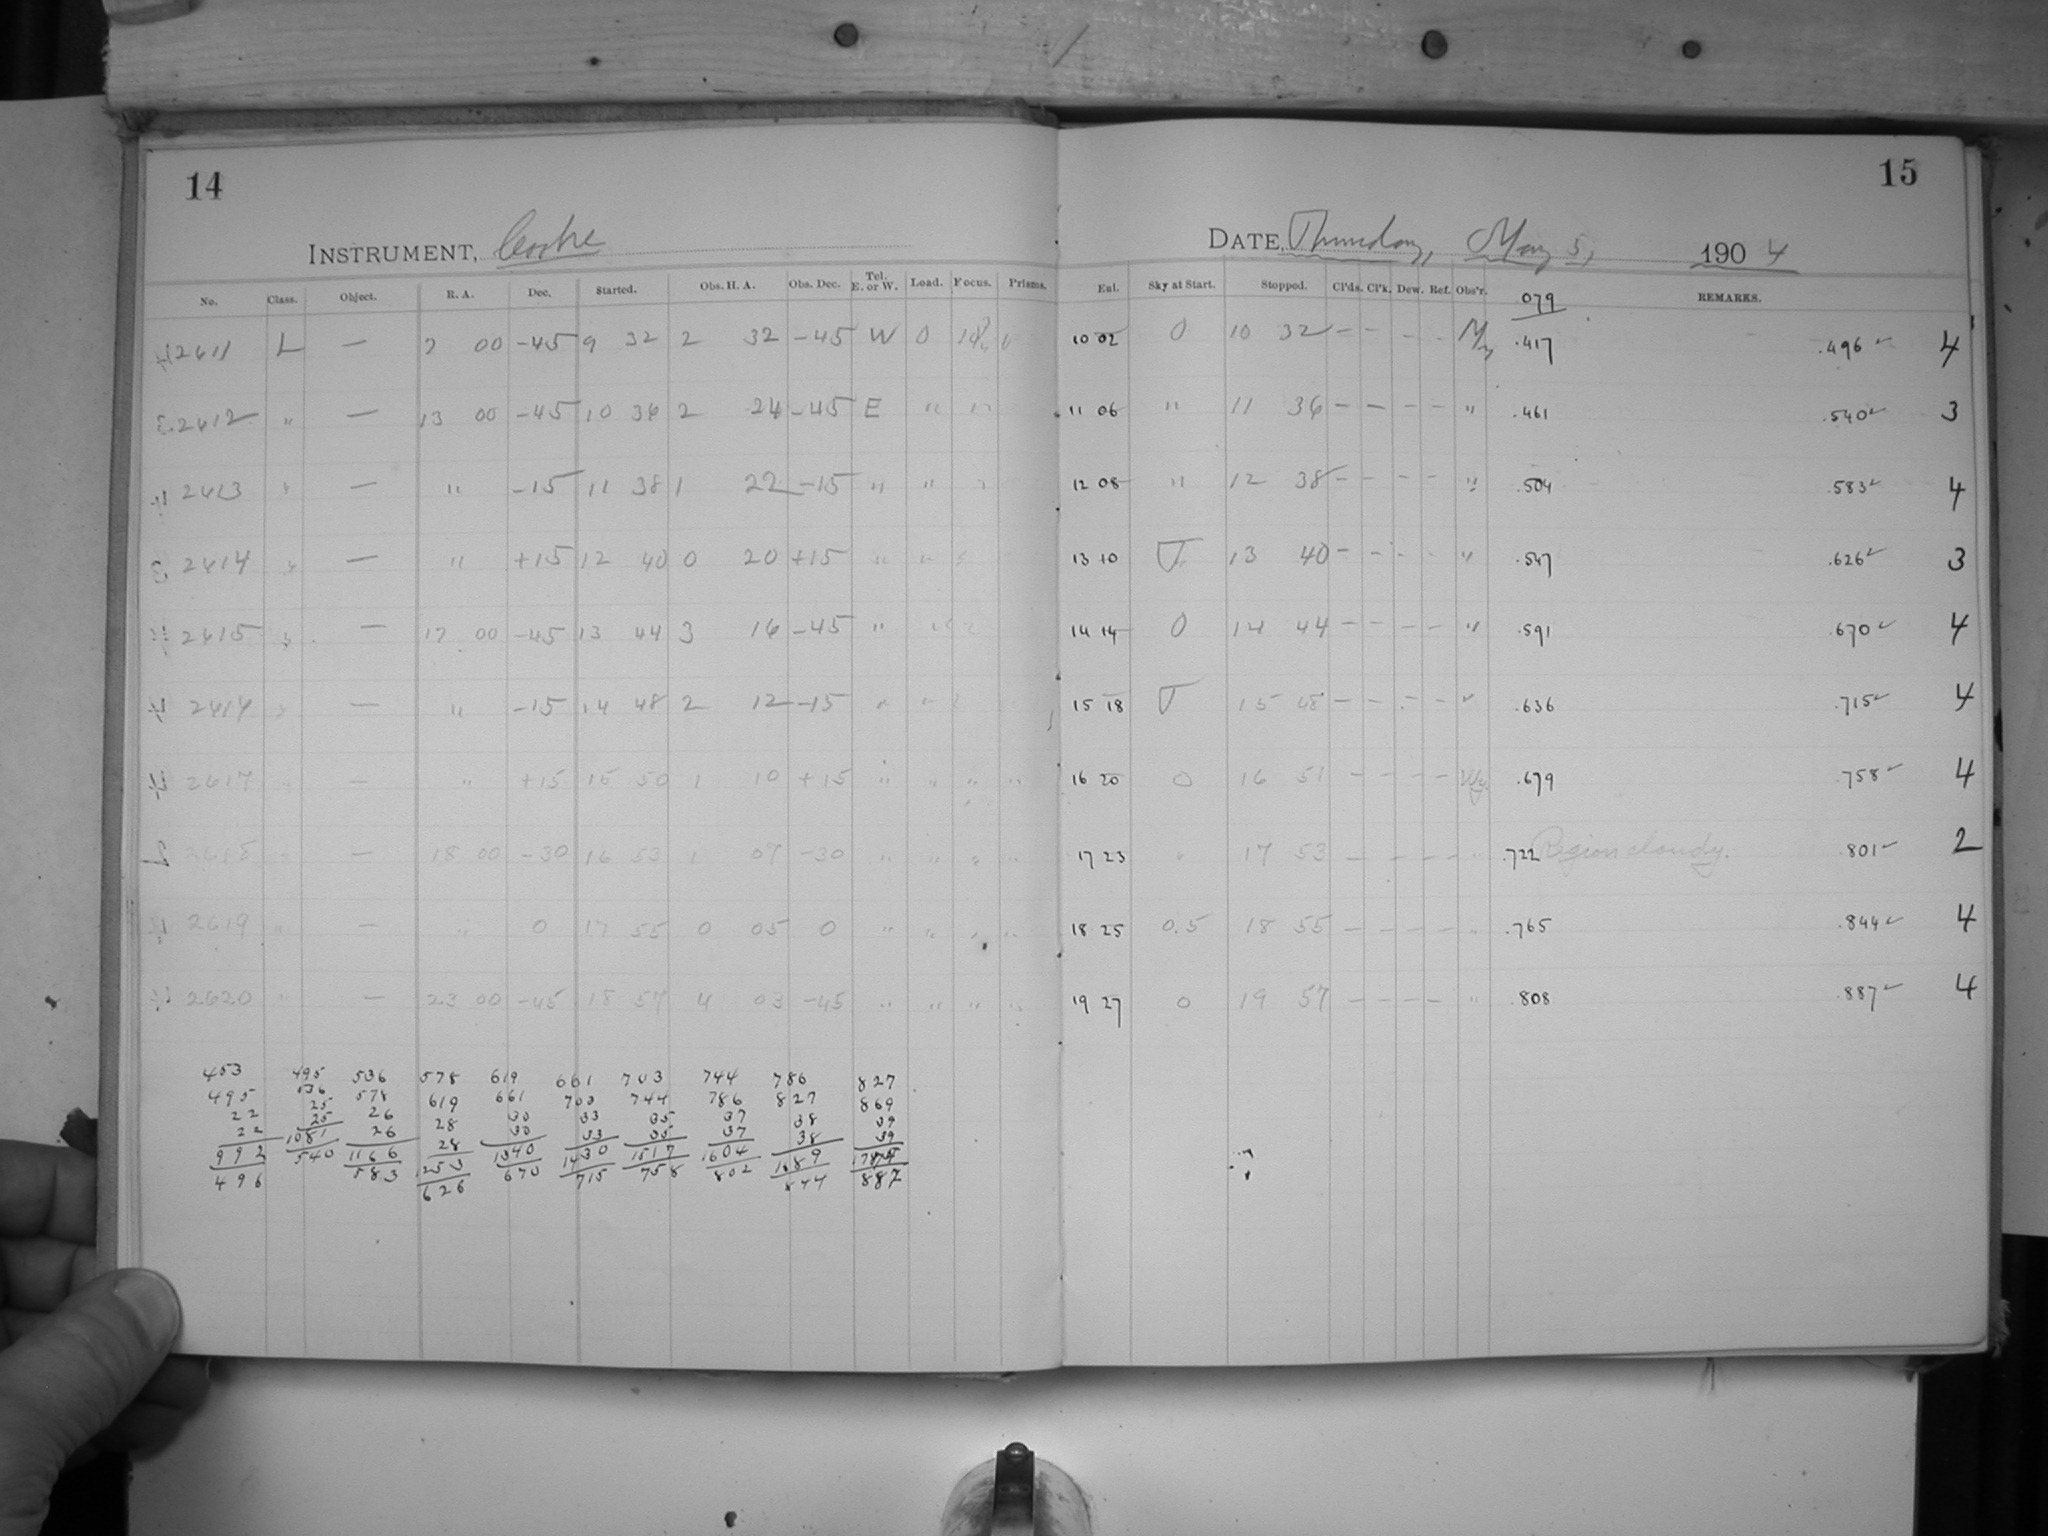 14
15
INSTRUMENT, Cooke
DATE, Thursday, May 5, 1904
No. Class. Object. R. A. Dec. Started. Obs. H. A. Obs. Dec. Tel. E. or W. Load. Focus. Prisms. Ent. Sky at Start. Stopped. Cl'ds. Cl'k. Dew. Ref. Obs'r. REMARKS.
079
L — 7 00 -45 9 32 2 32 -45 W 0 10 02 0 10 32 - - - - .417 .496 ✓ 4
2612 " — 13 00 -45 10 36 2 24 -45 E " " 11 06 " 11 36 - - - - " .461 .540 ✓ 3
2613 " — " -15 11 38 1 22 -15 " " " 12 08 " 12 38 - - - - " .504 .583 ✓ 4
2614 " — " +15 12 40 0 20 +15 " " 13 10 13 40 - - - - " .547 .626 ✓ 3
2615 " — 17 00 -45 13 44 3 16 -45 " " 14 14 0 14 44 - - - - " .591 .670 ✓ 4
2616 " — " -15 14 48 2 12 -15 " " 15 18 15 48 - - - - " .636 .715 ✓ 4
2617 " — " +15 15 50 1 10 +15 " " " " 16 20 0 16 51 - - - - .679 .758 ✓ 4
2618 " — 18 00 -30 16 53 1 07 -30 " " " " 17 23 " 17 53 - - - - " .722 Region cloudy. .801 ✓ 2
2619 " — " 0 17 55 0 05 0 " " " " 18 25 0.5 18 55 - - - - " .765 .844 ✓ 4
2620 " — 23 00 -45 18 57 4 03 -45 " " " " 19 27 0 19 57 - - - - " .808 .887 ✓ 4
453 495 536 578 619 661 703 744 786 827
495 536 578 619 661 703 744 786 827 869
22 25 26 28 30 33 35 37 38 39
22 25 26 28 30 33 35 37 38 39
992 1081 1166 1253 1340 1430 1517 1604 1689
496 540 583 626 670 715 758 802 844 887